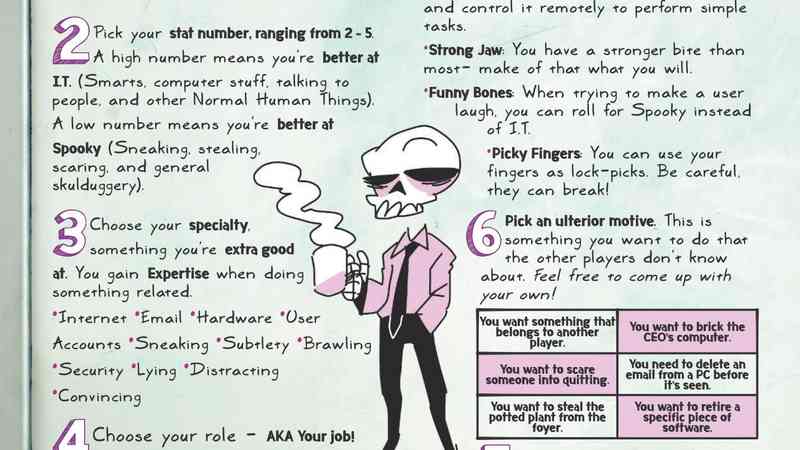 2 Pick your stat number, ranging from 2 - 5.
A high number means you're better at
I.T. (Smarts, computer stuff, talking to
people, and other Normal Human Things).
A low number means you're better at
Spooky (Sneaking, stealing,
scaring, and general
skulduggery).
3 Choose your specialty,
something you're extra good
at. You gain Expertise when doing
something related.
*Internet *Email *Hardware *User
Accounts *Sneaking *Subtlety *Brawling
*Security *Lying *Distracting
*Convincing
4 Choose your role - AKA Your job!
and control it remotely to perform simple
tasks.
*Strong Jaw: You have a stronger bite than
most- make of that what you will.
*Funny Bones: When trying to make a user
laugh, you can roll for Spooky instead
of I.T.
*Picky Fingers: You can use your
fingers as lock-picks. Be careful,
they can break!
6 Pick an ulterior motive. This is
something you want to do that
the other players don't know
about. Feel free to come up with
your own!
You want something that
belongs to another
player.
You want to brick the
CEO's computer.
You want to scare
someone into quitting.
You need to delete an
email from a PC before
it's seen.
You want to steal the
potted plant from the
foyer.
You want to retire a
specific piece of
software.